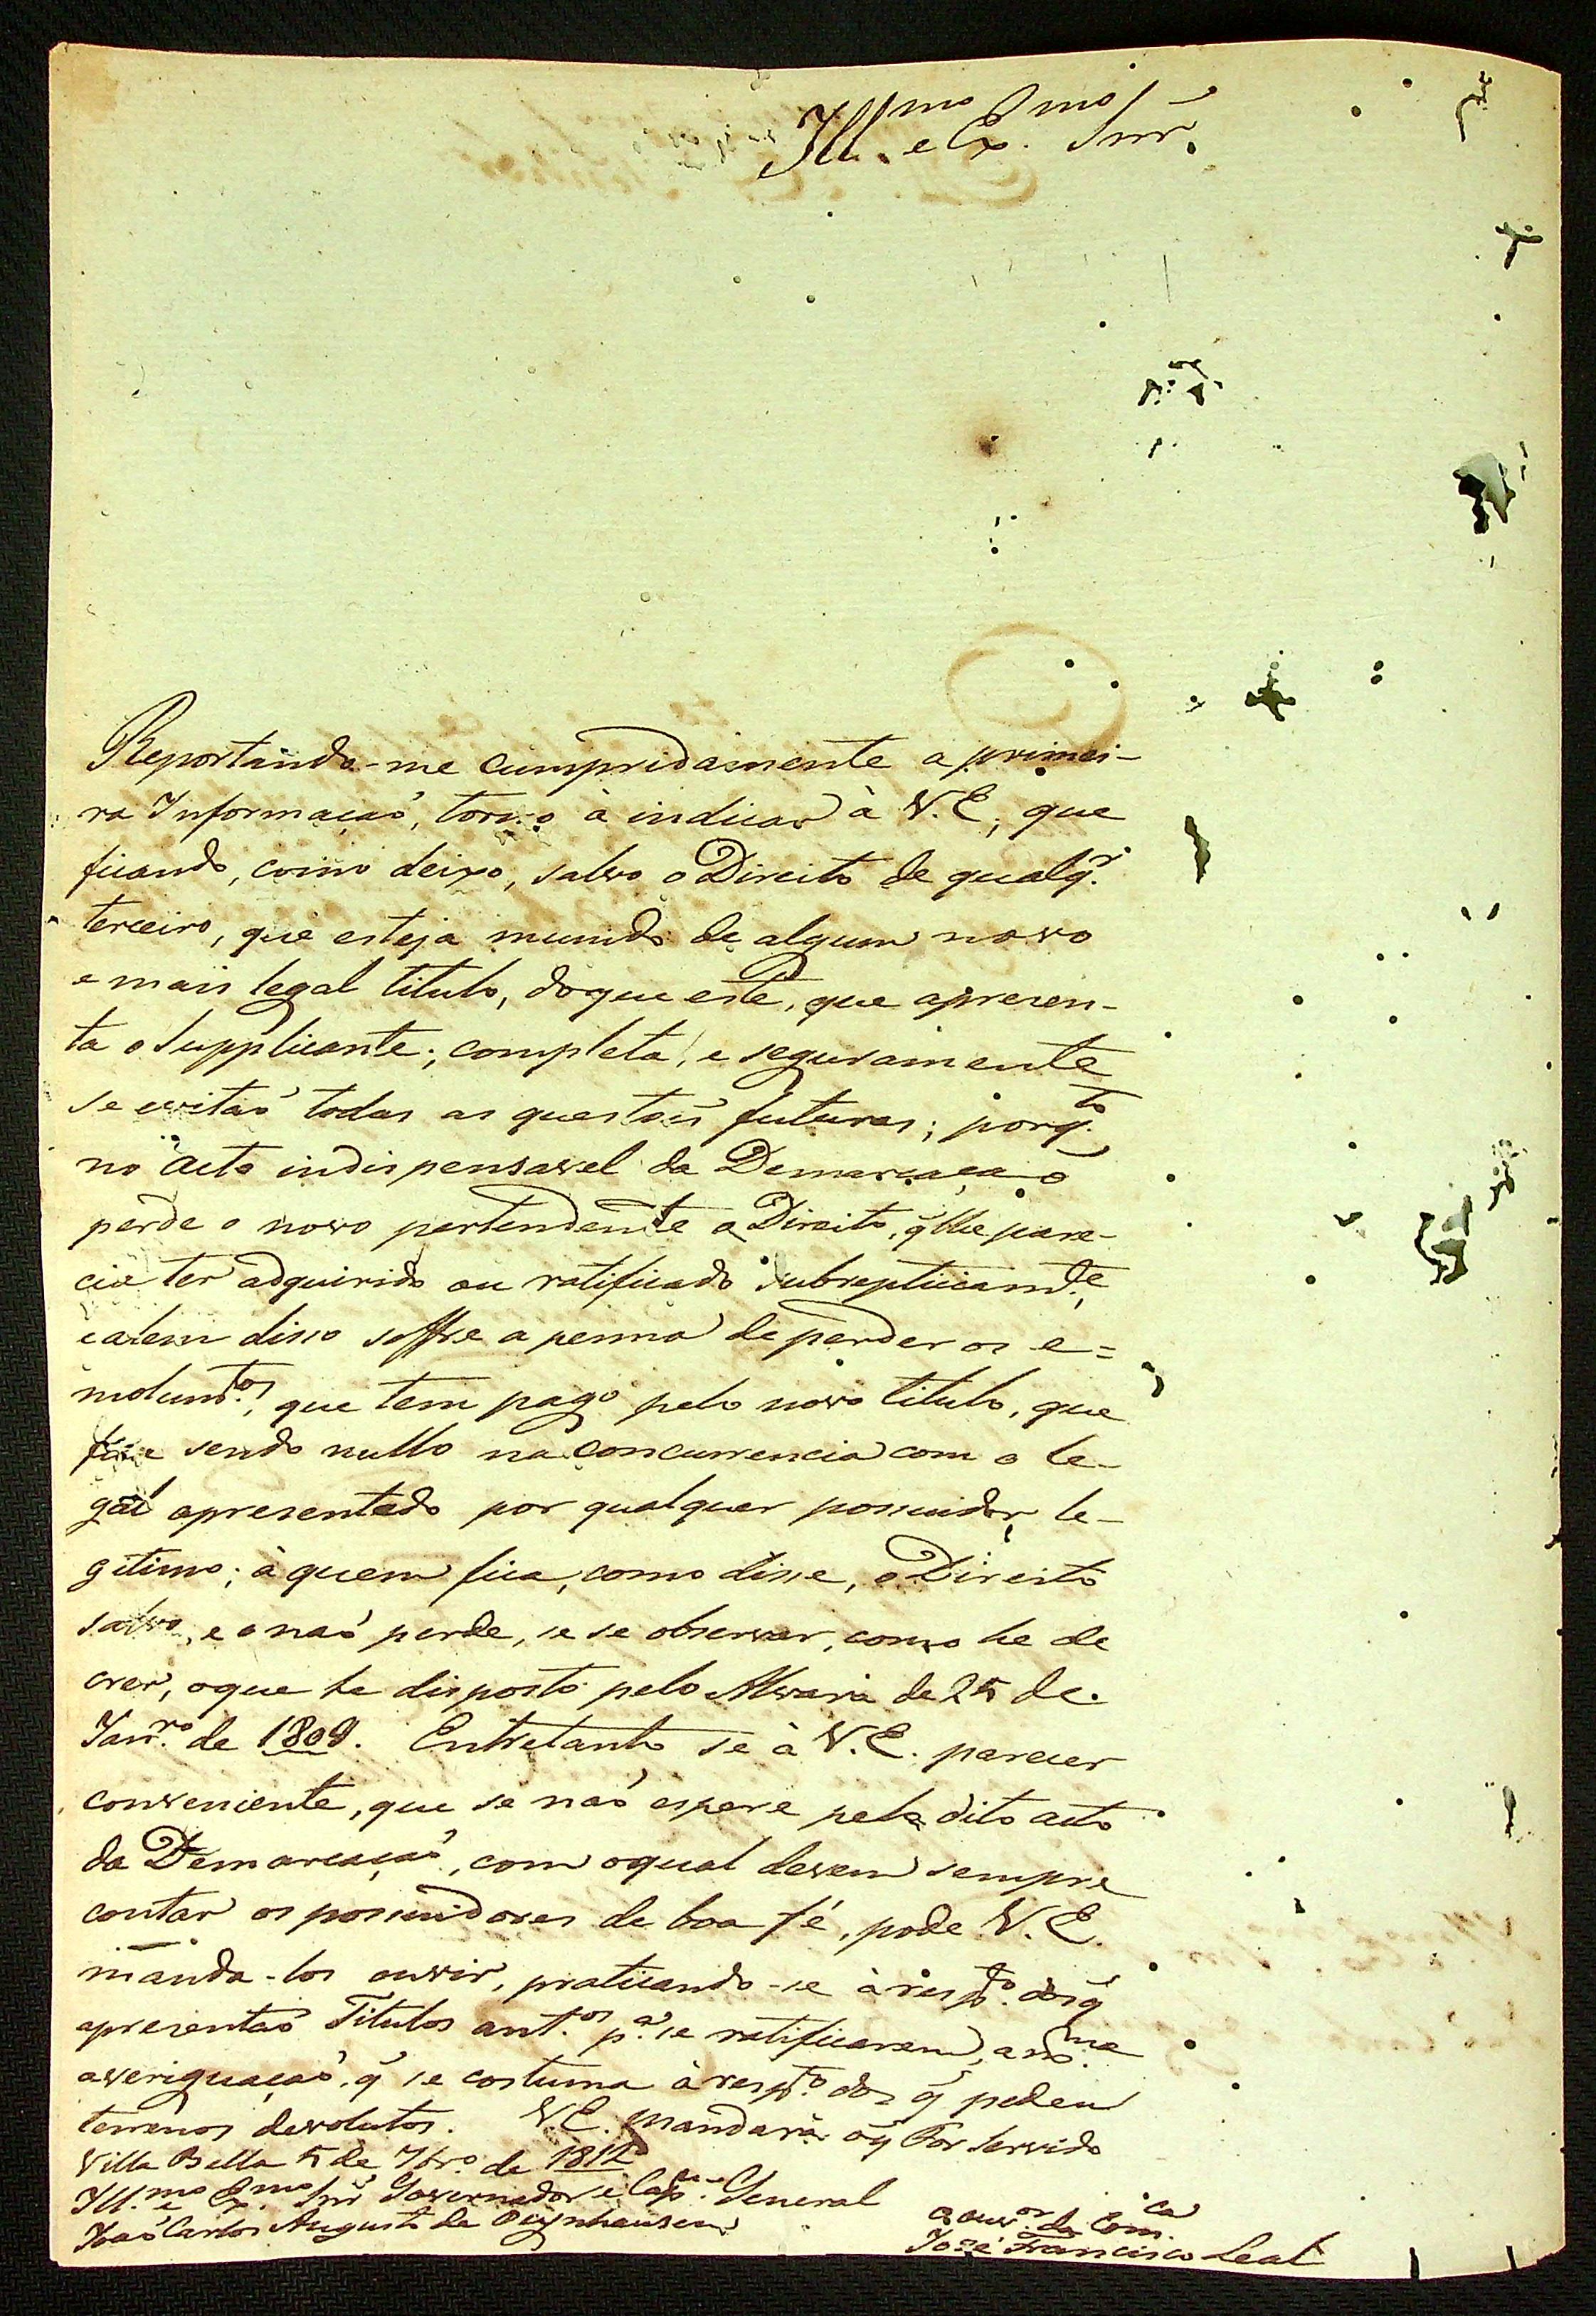 Ill.mo e Ex.mo Snr.
Reportando-me cumpridamente a primei-
ra Informaçaõ, torno à indicar à V.E, que
ficando, como deixo, salvo o Direito de qualq.r
terceiro, que esteja munido de algum novo
e mais legal titulo, doque este, que apresen-
ta o Supplicante; completa, e seguramente
se evitaõ todas as questoẽs futuras; porq.to
no acto indispensavel da Demarcaçaõ
perde o novo pertendente o Direito, q̃ lhe pare-
cia ter adquirido ou ratificado subrepticiam.te,
e alem disso soffre a penna de perder os e=
molum.tos, que tem pago pelo novo titulo, que
fica sendo nullo na concurrencia com o le-
gal apresentado por qualquer possuidor le-
gitimo; à quem fica, como disse, o Direito
salvo, e o naõ perde, se se observar, como he de
crer, oque he disposto pelo Alvará de 25 de
Janr.o de 1809. Entretanto se à V.E. parecer
conveniente, que se naõ espere pelo dito acto
da Demarcaçaõ, com oqual devem sempre
contar os possuidores de boa fé, pode V.E.
manda-los ouvir, praticando-se à resp.to dos q̃
apresentaõ Titulos ant.os p.a se ratificarem, a m.ma
averiguaçaõ, q̃ se costuma à resp.to dos q̃ pedem
terrenos devolutos. V.E. mandará oq̃ for servido
Villa Bella 5 de 7br.o de 1812
Ill.mo e Ex.mo Snr̃ Governador e Cap.m General
Joaõ Carlos Augusto de Oeynhausen
O Ouv.or da Com.ca
José Francisco Leal